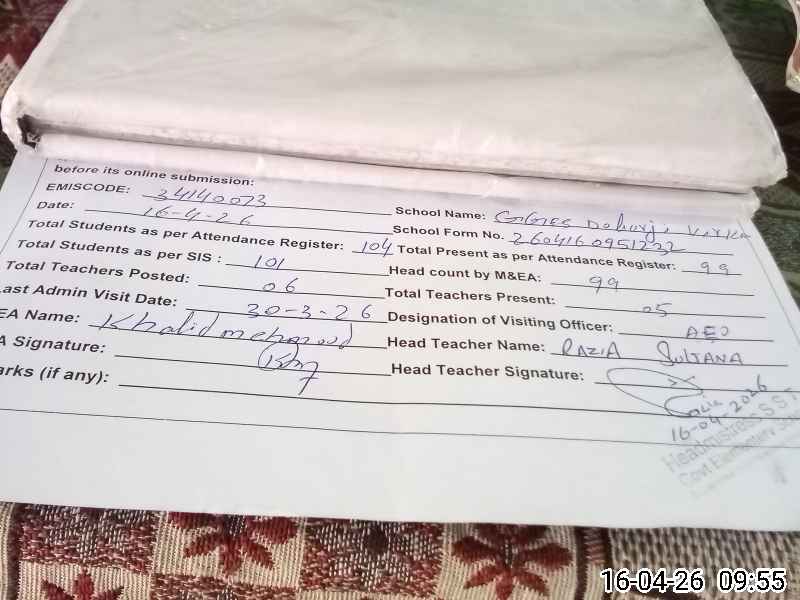 before its online submission:
EMISCODE: 34140073
School Name:
Date: 16-4-26
School Form No. 2604160951232
Total Students as per Attendance Register: 104
Total Present as per Attendance Register: 99
Total Students as per SIS : 101
Head count by M&EA: 99
Total Teachers Posted: 06
Total Teachers Present: 05
Last Admin Visit Date: 30-3-26
Designation of Visiting Officer: AEO
EA Name: Khalid mehmood
Head Teacher Name: RAZIA SULTANA
A Signature:
Head Teacher Signature:
arks (if any):
16-04-2026
Headmistress S.S.T
Govt Elementary
16-04-26 09:55